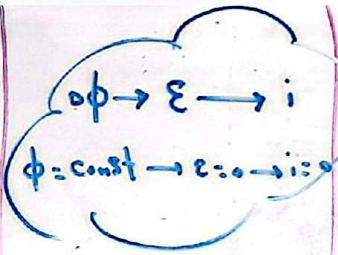 △ϕ → ε → i
ϕ = const → ε = 0 → i = 0